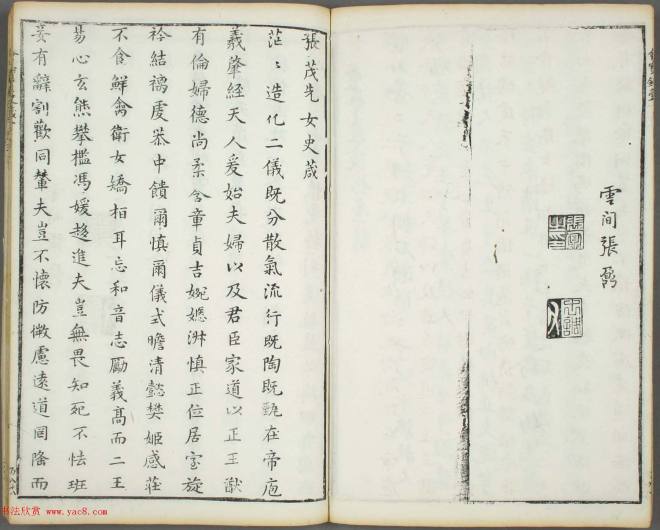 雲間張
張茂先女史箴
茫〻造化二儀既分散氣流行既陶既甄在帝庖
羲肇經天人爰始夫婦以及君臣家道以正王猷
有倫婦德尚柔含章貞吉婉嫕淑慎正位居室旋
衿結褵虔恭中饋爾慎爾儀式瞻清懿樊姬感莊
不食鮮禽衛女矯桓耳忘和音志勵義高而二王
易心玄熊攀檻馮媛趍進夫豈無畏知死不恡班
妾有辭割歡同輦夫豈不懷防微慮遠道罔隆而
书法欣赏 www.yac8.com